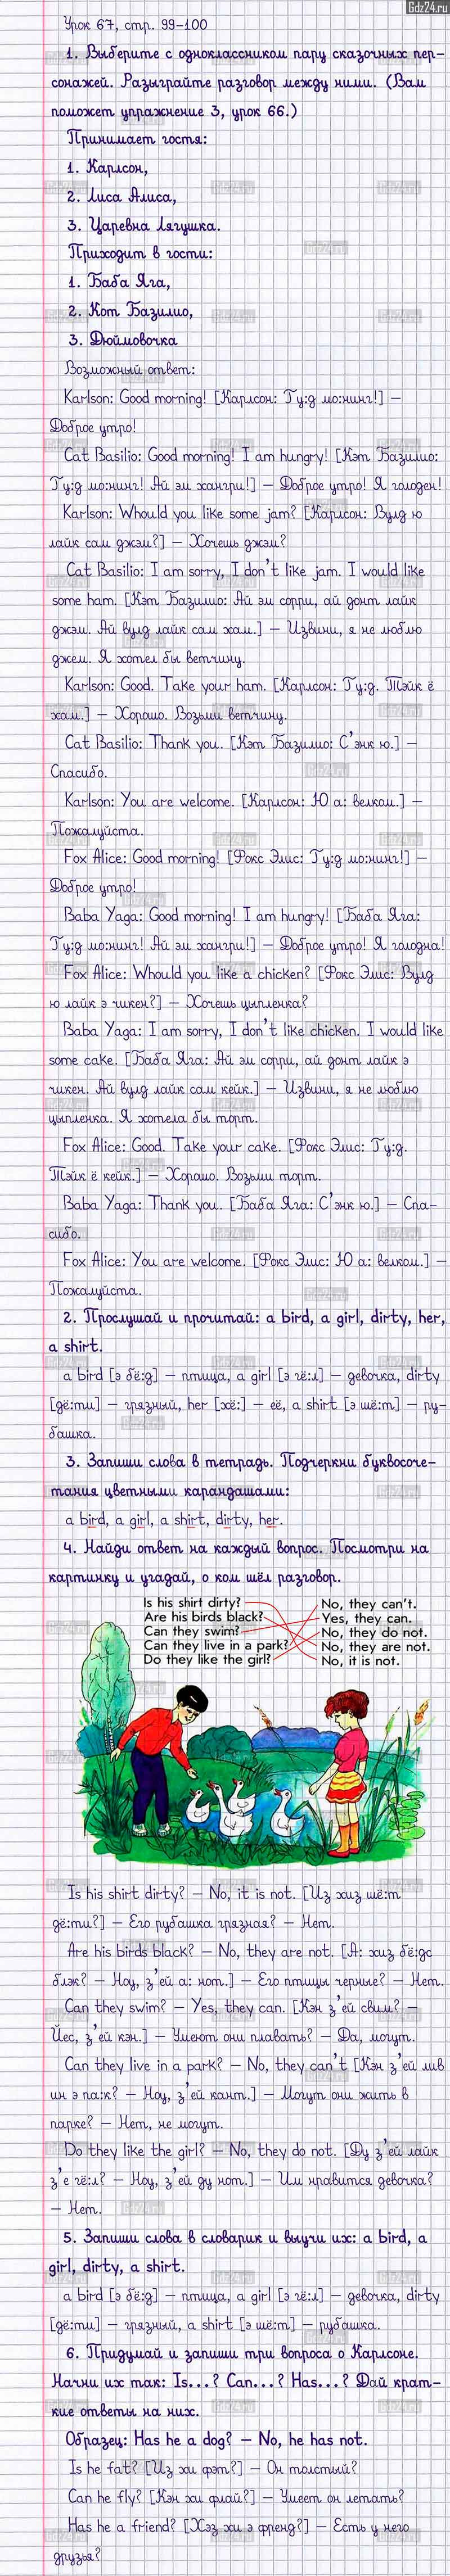 Gdz24.ru
Урок 67, стр. 99-100
1. Выберите с одноклассником пару сказочных пер-
сонажей. Разыграйте разговор между ними. (Вам
поможет упражнение 3, урок 66.)
Принимает гостя:
1. Карлсон,
2. Лиса Алиса,
3. Царевна Лягушка.
Приходит в гости:
1. Баба Яга,
2. Кот Базилио,
3. Дюймовочка
Возможный ответ:
Karlson: Good morning! [Карлсон: Гу:д мо:нинг!] –
Доброе утро!
Cat Basilio: Good morning! I am hungry! [Кэт Базилио:
Гу:д мо:нинг! Ай эм хангри!] – Доброе утро! Я голоден!
Karlson: Whould you like some jam? [Карлсон: Вулд ю
лайк сам джэм?] – Хочешь джэм?
Cat Basilio: I am sorry, I don't like jam. I would like
some ham. [Кэт Базилио: Ай эм сорри, ай донт лайк
джэм. Ай вулд лайк сам хэм.] – Извини, я не люблю
джем. Я хотел бы ветчину.
Karlson: Good. Take your ham. [Карлсон: Гу:д. Тэйк ё
хэм.] – Хорошо. Возьми ветчину.
Cat Basilio: Thank you. [Кэт Базилио: С'энк ю.] –
Спасибо.
Karlson: You are welcome. [Карлсон: Ю а: велком.] –
Пожалуйста.
Fox Alice: Good morning! [Фокс Элис: Гу:д мо:нинг!] –
Доброе утро!
Baba Yaga: Good morning! I am hungry! [Баба Яга:
Гу:д мо:нинг! Ай эм хангри!] – Доброе утро! Я голодна!
Fox Alice: Whould you like a chicken? [Фокс Элис: Вулд
ю лайк э чикен?] – Хочешь цыпленка?
Baba Yaga: I am sorry, I don't like chicken. I would like
some cake. [Баба Яга: Ай эм сорри, ай донт лайк э
чикен. Ай вулд лайк сам кейк.] – Извини, я не люблю
цыпленка. Я хотела бы торт.
Fox Alice: Good. Take your cake. [Фокс Элис: Гу:д.
Тэйк ё кейк.] – Хорошо. Возьми торт.
Baba Yaga: Thank you. [Баба Яга: С'энк ю.] – Спа-
сибо.
Fox Alice: You are welcome. [Фокс Элис: Ю а: велком.] –
Пожалуйста.
2. Прослушай и прочитай: a bird, a girl, dirty, her,
a shirt.
a bird [э бё:д] – птица, a girl [э гё:л] – девочка, dirty
[дё:ти] – грязный, her [хё:] – её, a shirt [э шё:т] – ру-
башка.
3. Запиши слова в тетрадь. Подчеркни буквосоче-
тания цветными карандашами:
a bird, a girl, a shirt, dirty, her.
4. Найди ответ на каждый вопрос. Посмотри на
картинку и угадай, о ком шёл разговор.
Is his shirt dirty? No, they can't.
Are his birds black? Yes, they can.
Can they swim? No, they do not.
Can they live in a park? No, they are not.
Do they like the girl? No, it is not.
Is his shirt dirty? – No, it is not. [Из хиз шё:т
дё:ти?] – Его рубашка грязная? – Нет.
Are his birds black? – No, they are not. [А: хиз бё:дс
блэк? – Ноу, з'ей а: нот.] – Его птицы черные? – Нет.
Can they swim? – Yes, they can. [Кэн з'ей свим? –
Йес, з'ей кэн.] – Умеют они плавать? – Да, могут.
Can they live in a park? – No, they can't [Кэн з'ей лив
ин э па:к? – Ноу, з'ей кант.] – Могут они жить в
парке? – Нет, не могут.
Do they like the girl? – No, they do not. [Ду з'ей лайк
з'е гё:л? – Ноу, з'ей ду нот.] – Им нравится девочка?
– Нет.
5. Запиши слова в словарик и выучи их: a bird, a
girl, dirty, a shirt.
a bird [э бё:д] – птица, a girl [э гё:л] – девочка, dirty
[дё:ти] – грязный, a shirt [э шё:т] – рубашка.
6. Придумай и запиши три вопроса о Карлсоне.
Начни их так: Is...? Can...? Has...? Дай крат-
кие ответы на них.
Образец: Has he a dog? – No, he has not.
Is he fat? [Из хи фэт?] – Он толстый?
Can he fly? [Кэн хи флай?] – Умеет он летать?
Has he a friend? [Хэз хи э френд?] – Есть у него
друзья?